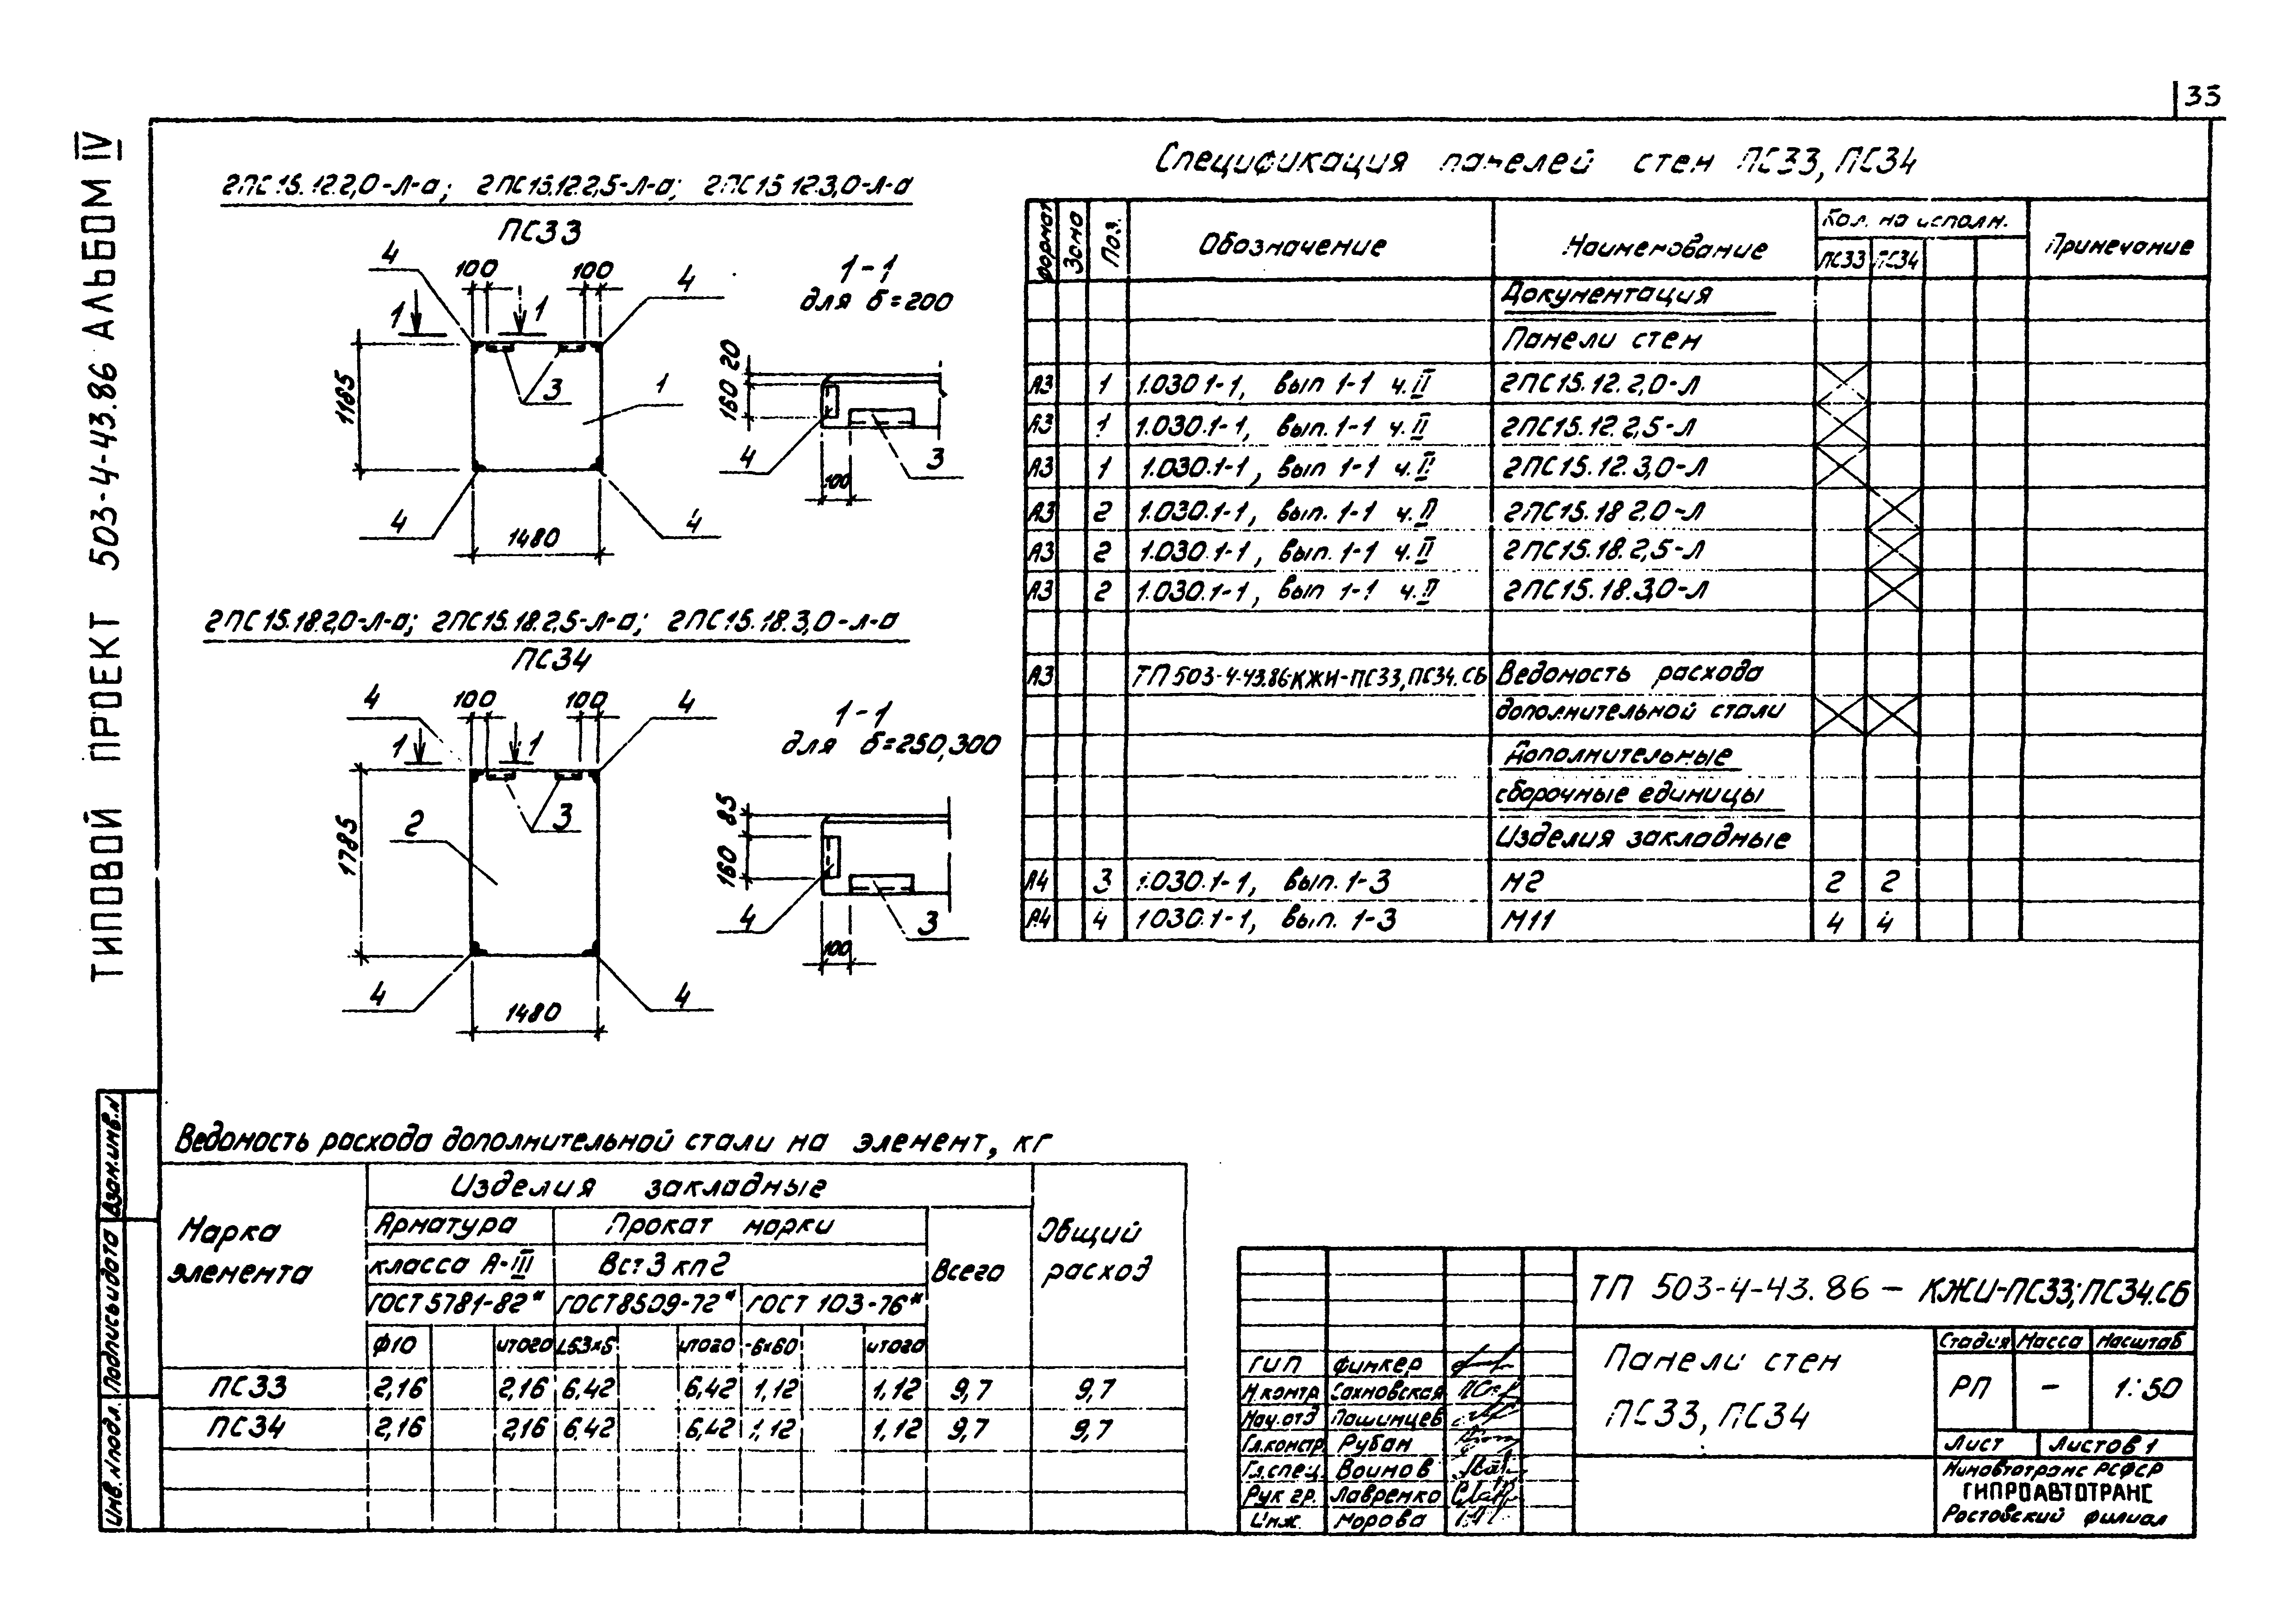 33
ТИПОВОЙ ПРОЕКТ 503-4-43.86 АЛЬБОМ IV
2ПС15.12.2,0-Л-а; 2ПС15.12.2,5-Л-а; 2ПС15 12.3,0-Л-а
ПС33
4
100
100
4
1
1
3
1
1185
4
4
1480
1-1
для δ=200
20
160
4
3
100
2ПС15.18.2,0-Л-а; 2ПС15.18.2,5-Л-а; 2ПС15.18.3,0-Л-а
ПС34
4
100
100
4
1
1
2
3
1785
4
4
1480
1-1
для δ=250,300
85
160
4
3
100
Спецификация панелей стен ПС33, ПС34
Формат Зона Поз. Обозначение Наименование Кол. на исполн. Примечание
ПС33 ПС34
Документация
Панели стен
А3 1 1.030 1-1, вып 1-1 ч.II 2ПС15.12.2,0-Л
А3 1 1.030.1-1, вып. 1-1 ч.II 2ПС15.12.2,5-Л
А3 1 1.030.1-1, вып 1-1 ч.II 2ПС15.12.3,0-Л
А3 2 1.030.1-1, вып. 1-1 ч.II 2ПС15.18 2,0-Л
А3 2 1.030.1-1, вып. 1-1 ч.II 2ПС15.18.2,5-Л
А3 2 1.030.1-1, вып 1-1 ч.II 2ПС15.18.3,0-Л
А3 ТП 503-4-43.86-КЖИ-ПС33, ПС34.СБ Ведомость расхода
дополнительной стали
Дополнительные
сборочные единицы
Изделия закладные
А4 3 1.030.1-1, вып. 1-3 М2 2 2
А4 4 1030.1-1, вып. 1-3 М11 4 4
Ведомость расхода дополнительной стали на элемент, кг
Марка элемента
Изделия закладные
Общий расход
Арматура класса А-III
Прокат марки Вст3кп2
Всего
ГОСТ 5781-82* ГОСТ 8509-72* ГОСТ 103-76*
Ф10 итого L63х5 итого -6х60 итого
ПС33 2,16 2,16 6,42 6,42 1,12 1,12 9,7 9,7
ПС34 2,16 2,16 6,42 6,42 1,12 1,12 9,7 9,7
Взам.инв.N
Подпись и дата
Инв.N подл.
ТП 503-4-43.86 - КЖИ-ПС33; ПС34.СБ
Панели стен
ПС33, ПС34
Стадия Масса Масштаб
РП - 1:50
Лист Листов 1
Минавтотранс РСФСР
ГИПРОАВТОТРАНС
Ростовский филиал
ГИП Финкер
Н.контр Сахновская
Нач.отд Пашинцев
Гл.констр. Рубан
Гл.спец. Воинов
Рук гр. Лавренко
Инж. Морова